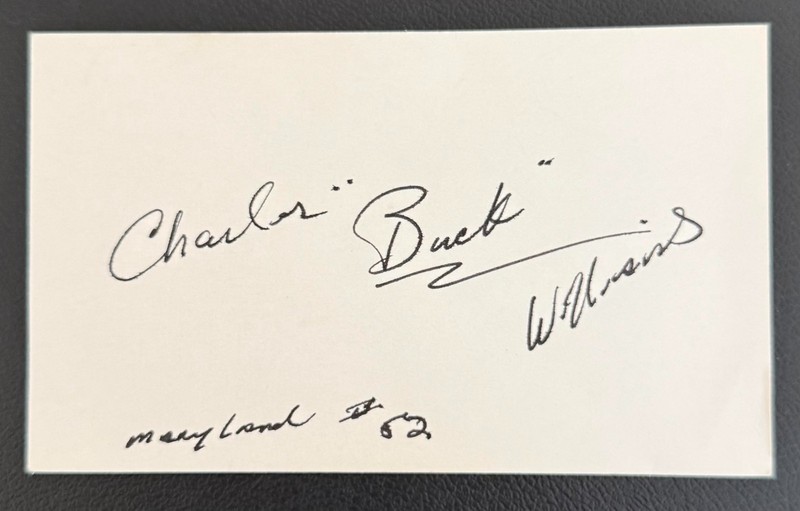 Charles "Buck"
Williams
Maryland # 52